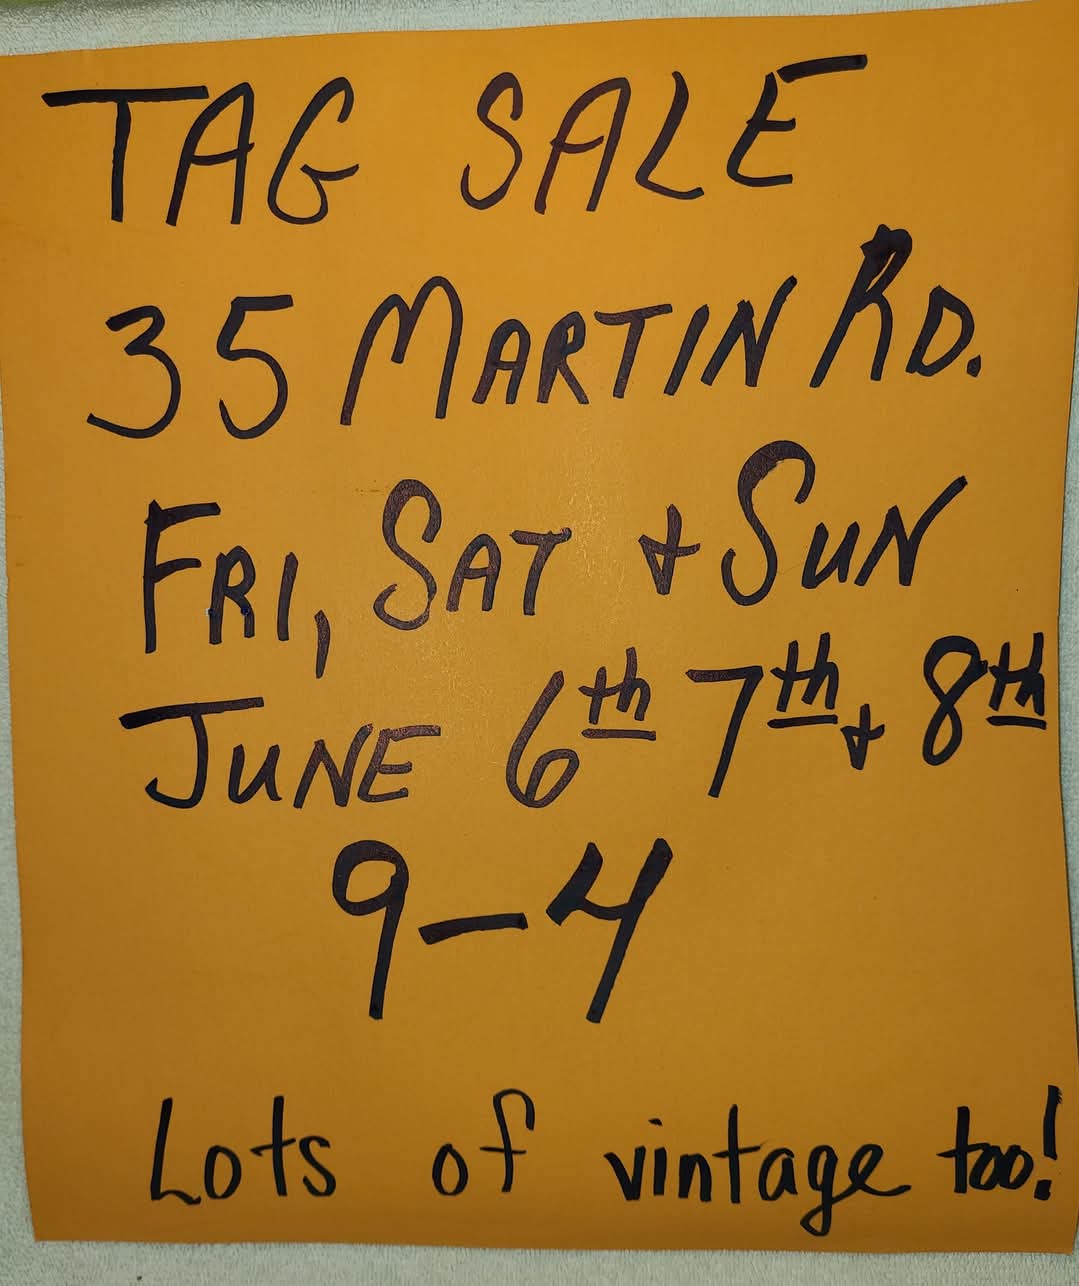 TAG SALE
35 MARTIN RD.
FRI, SAT + SUN
JUNE 6th 7th + 8th
9-4
Lots of vintage too!